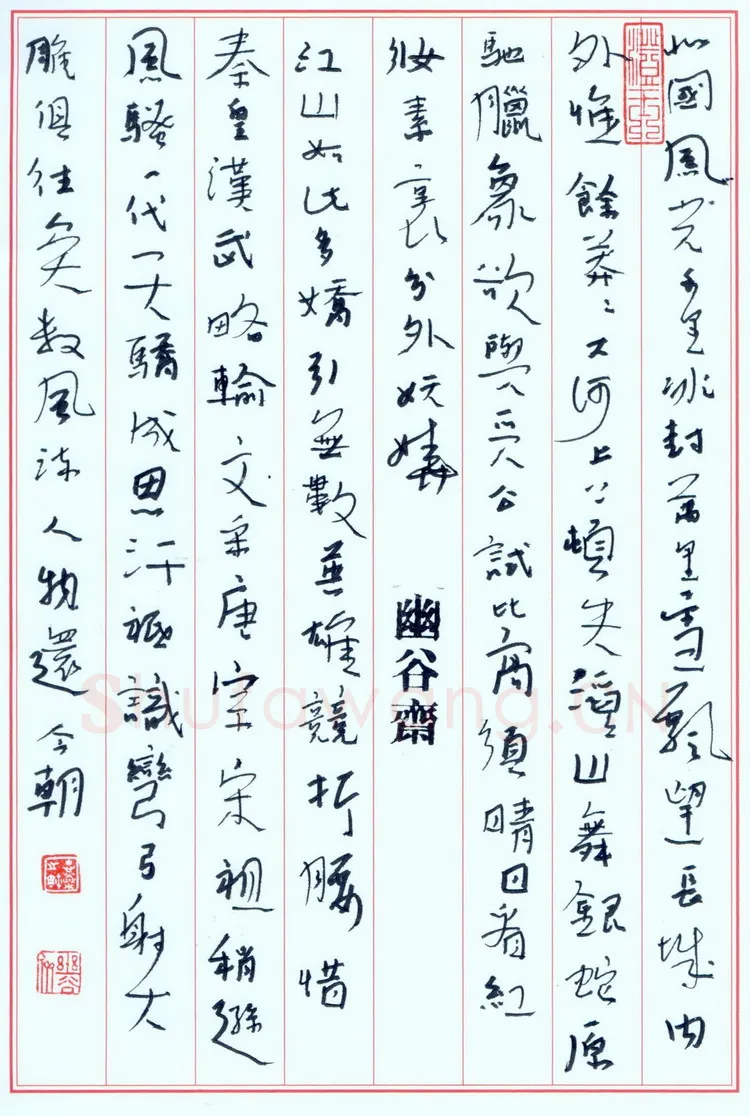 北國風光千里冰封萬里雪飄望長城内
外惟餘莽〻大河上下頓失滔山舞銀蛇原
馳臘象欲與天公試比高須晴日看紅
妝素裹分外妖嬈
幽谷齋
江山如此多嬌引無數英雄競折腰惜
秦皇漢武略輸文采唐宗宋祖稍遜
風騷一代天驕成思汗祗識彎弓射大
雕俱往矣數風流人物還今朝
Shufawang.CN